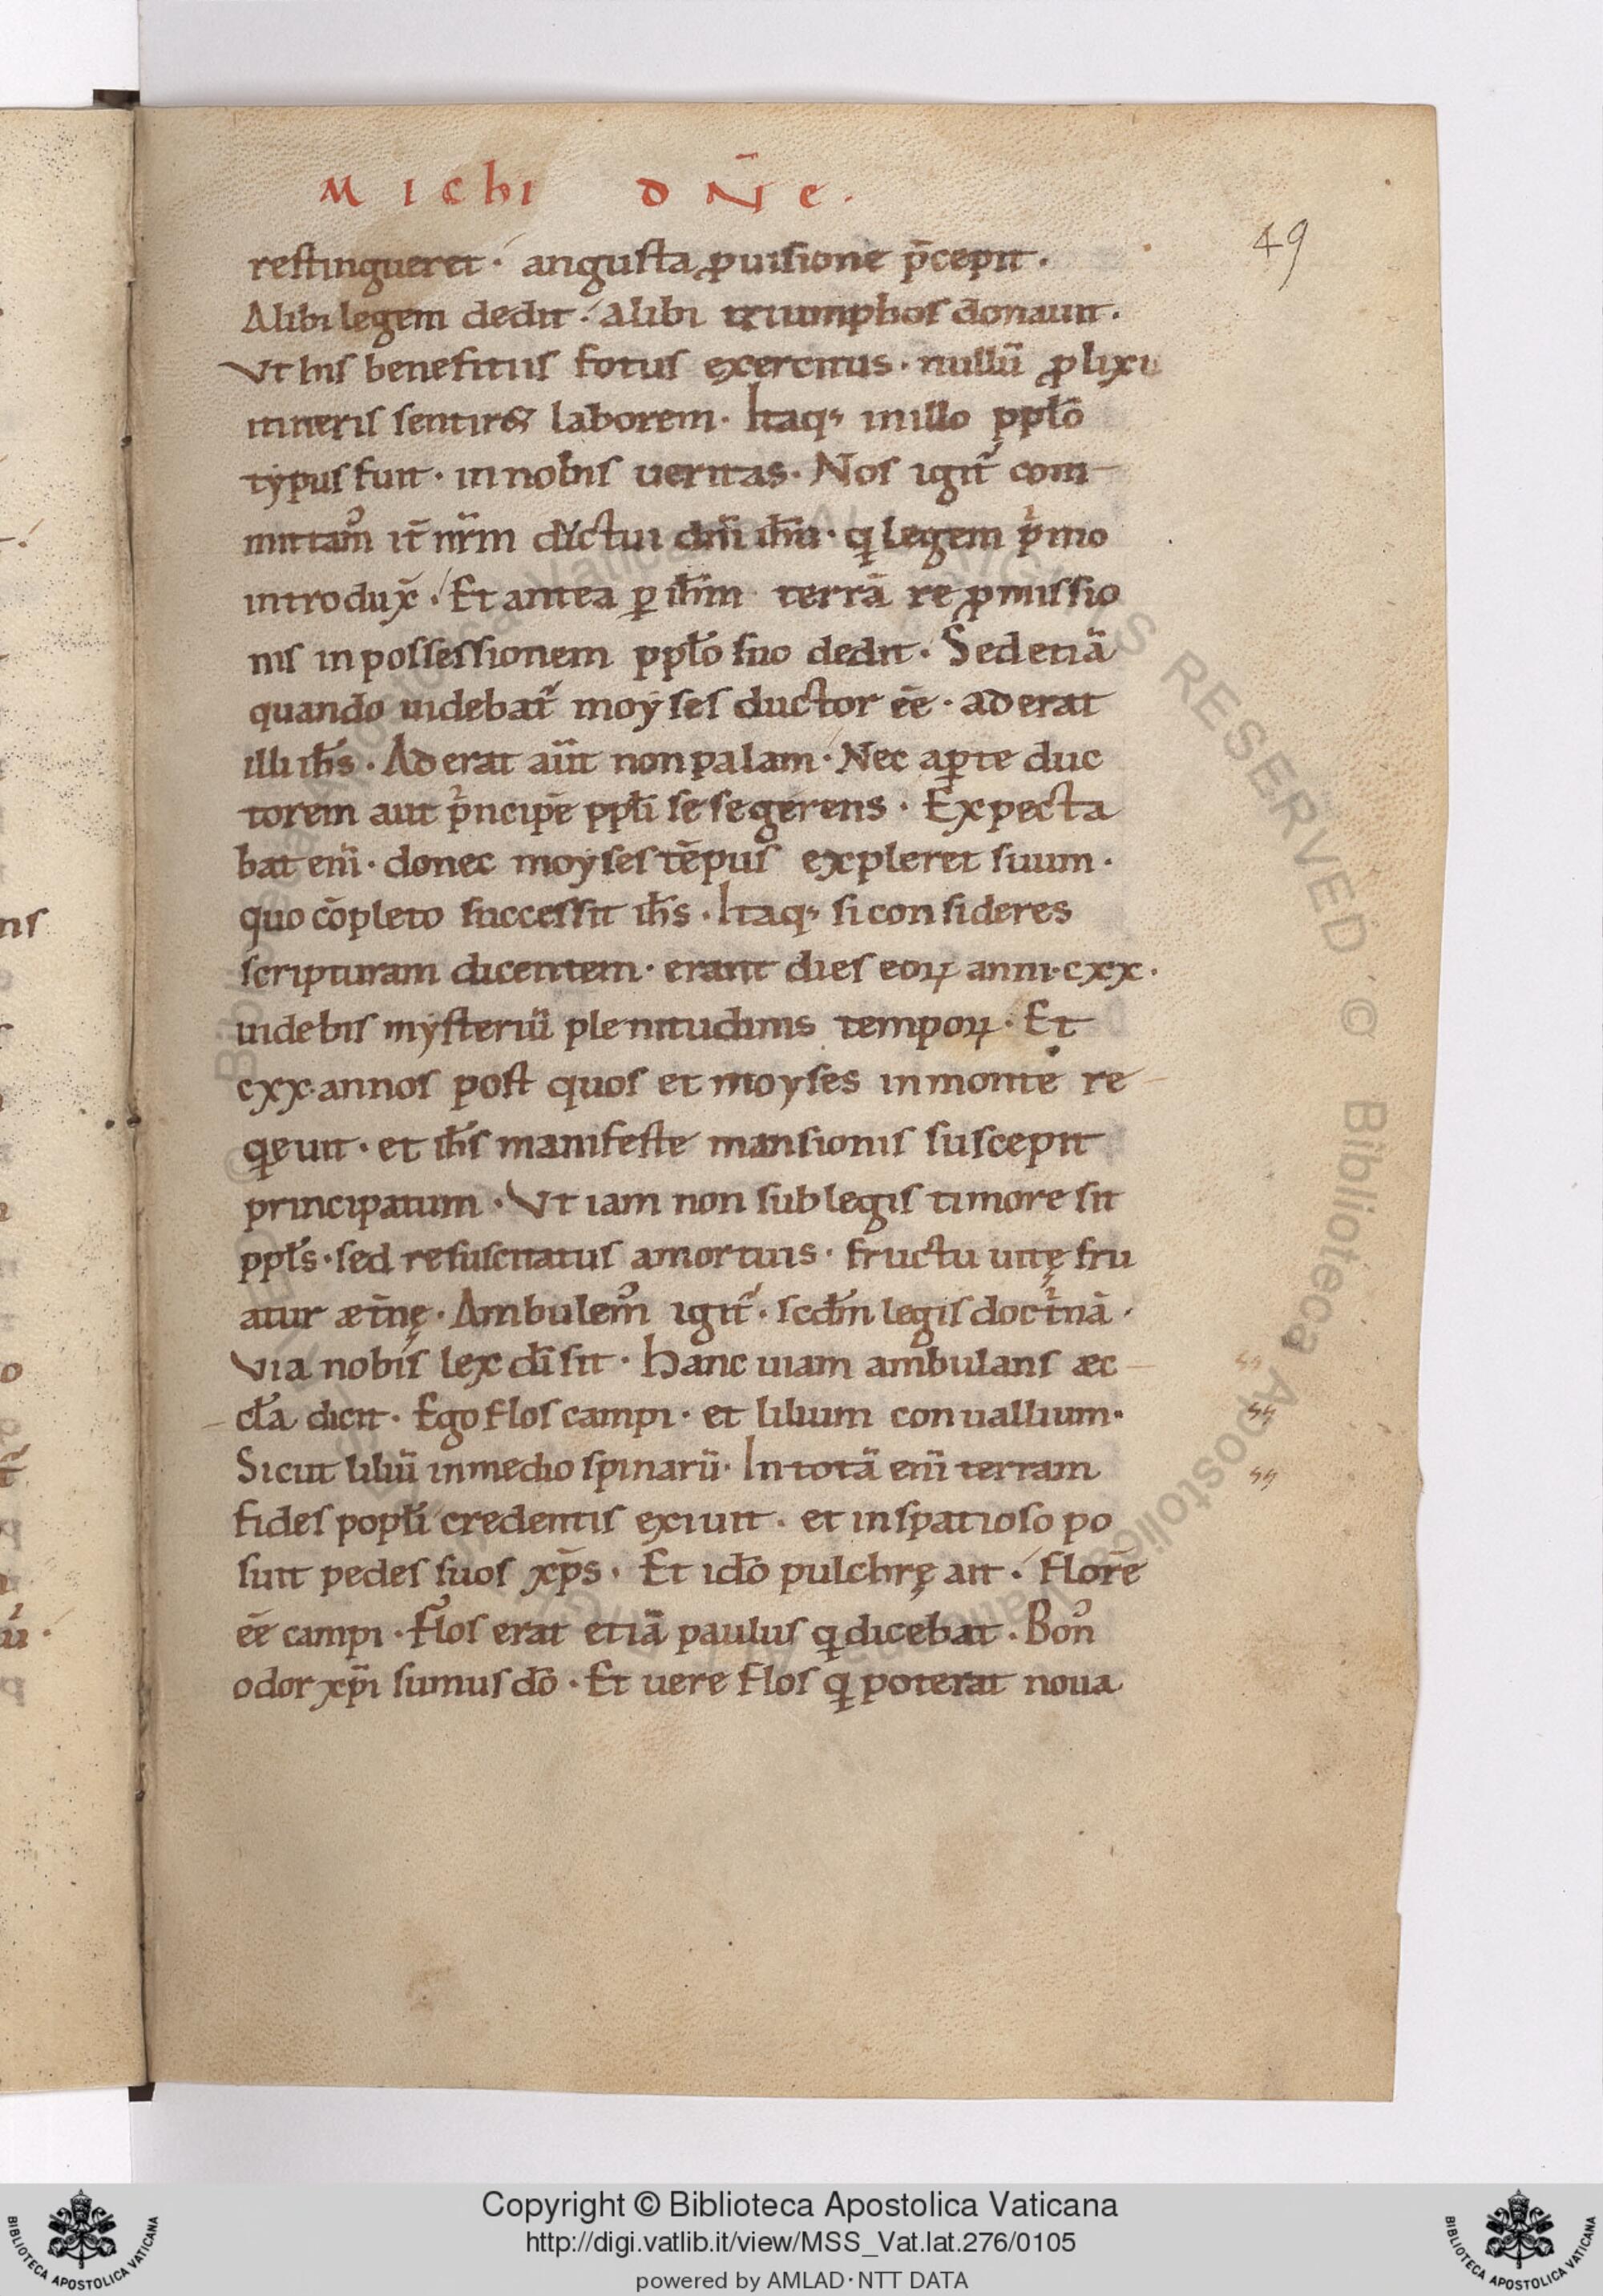 Michi dñe.
49
restingueret· angusta ꝓuisione p̄cepit·
Alibi legem dedit· alibi triumphos donauit·
Vt his benefitiis fotus exercitus· nullū ꝓlixi
itineris sentir& laborem· Itaq; in illo pplo̅
typus fuit· in nobis ueritas· Nos igit᷑ com
mittam᷒ it̄ nr̄m ductui dn̄i ih̅u· q legem pͥmo
introdux̄· Et antea ꝑ ih̅m terrā reꝓmissio
nis in possessionem pplo̅ suo dedit· Sed etiā
quando uidebat᷑ moyses ductor ēe· aderat
illi ih̅s· Aderat aūt non palam· Nec aꝑte duc
torem aut pͥncipē ppli̅ se se gerens· Expecta
bat eni̅· donec moyses tēpus expleret suum·
quo cōpleto successit ih̅s· Itaq; si consideres
scripturam dicentem· erant dies eoꝝ anni·cxx·
uidebis mysteriū plenitudinis tempoꝝ· Et
cxx·annos post quos et moyses in monte re
q̄euit· et ih̅s manifeste mansionis suscepit
principatum· Vt iam non sub legis timore sit
ppls̅· sed resuscitatus amortuis· fructu uitę fru
atur æt̄nę· Ambulem᷒ igit᷑· scd̅m legis doctͥnā·
Via nobis lex dī sit· hanc uiam ambulans æc
cła dicit· Ego flos campi· et lilium conuallium·
Sicut liliū in medio spinarū· In totā eni̅ terram
fides popli̅ credentis exiuit· et in spatioso po
suit pedes suos xp̅s· Et ido̅ pulchrę ait· florē
ēe campi· Flos erat etiā paulus q dicebat· Bon᷒
odor xp̅i sumus do̅· Et uere flos q poterat noua
Copyright © Biblioteca Apostolica Vaticana
http://digi.vatlib.it/view/MSS_Vat.lat.276/0105
powered by AMLAD·NTT DATA